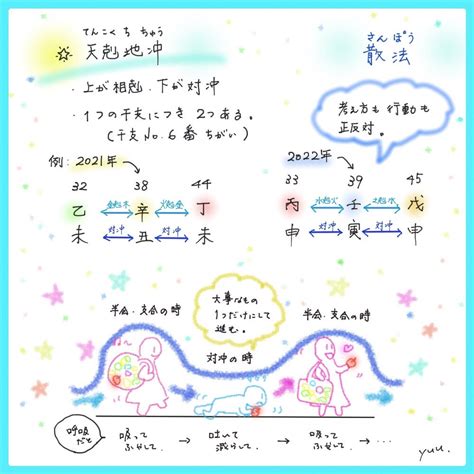 てんこくちちゅう
天剋地冲
さんぽう
散法
・上が相剋、下が対冲
・1つの干支につき 2つある。
(干支No.6番ちがい)
考え方も行動も
正反対。
例:2021年
32 38 44
乙 金剋木 辛 火剋金 丁
未 対冲 丑 対冲 未
2022年
33 39 45
丙 水剋火 壬 土剋水 戊
申 対冲 寅 対冲 申
半会・支合の時
大事なもの
1つだけにして
進む。
対冲の時
半会・支合の時
呼吸
だと
吸って
ふやして
→
吐いて
減らして
→
吸って
ふやして
→ ・・・
yuu.